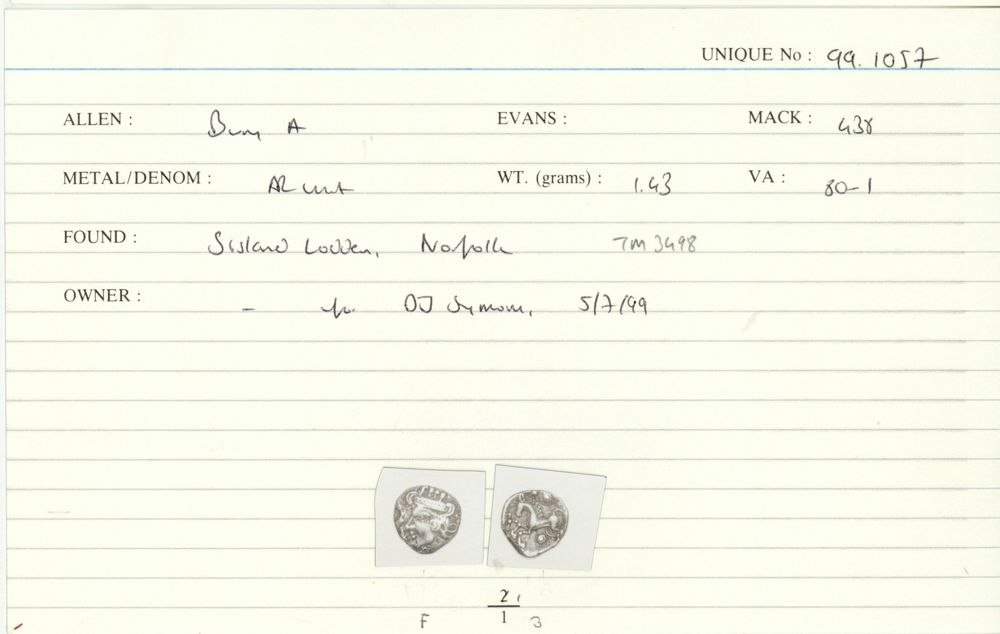 UNIQUE No : 99.1057
ALLEN : Bury A EVANS : MACK : 438
METAL/DENOM : AR unit WT. (grams) : 1.43 VA : 80-1
FOUND : Sisland Lodden, Norfolk TM 3498
OWNER : - DJ Symons, 5/7/99
2
F 1 3